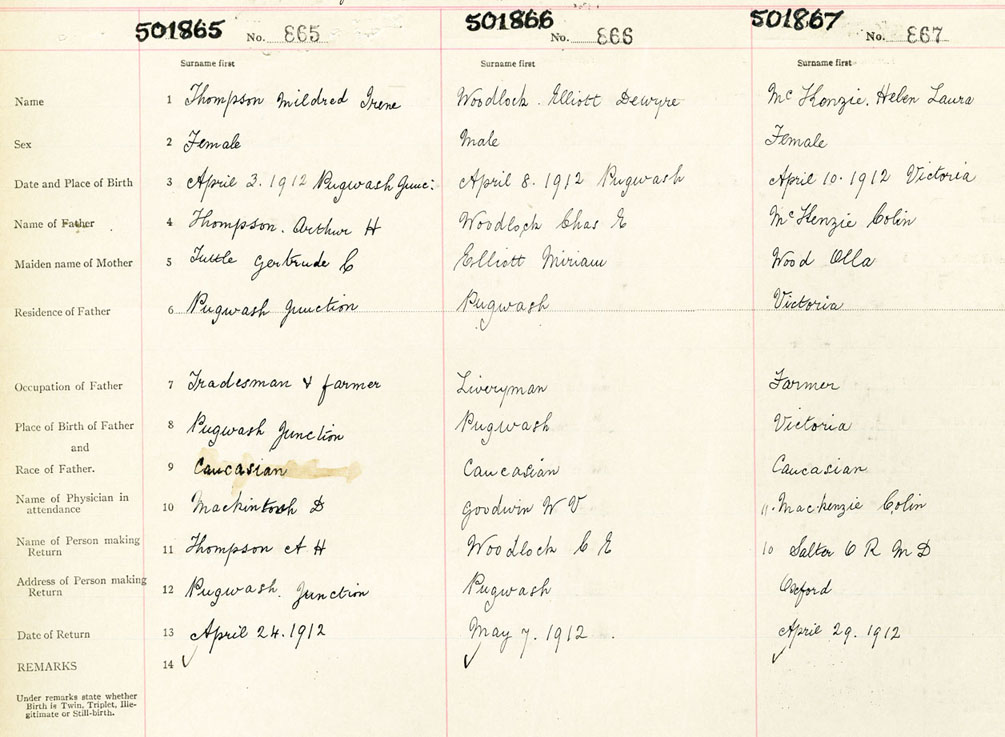 501865 No. 865 501866 No. 866 501867 No. 867
Surname first Surname first Surname first
Name 1 Thompson Mildred Irene Woodlock. Elliott Dewyre McKenzie. Helen Laura
Sex 2 Female Male Female
Date and Place of Birth 3 April 3. 1912 Pugwash Junc: April 8. 1912 Pugwash April 10. 1912 Victoria
Name of Father 4 Thompson. Arthur H Woodlock Chas E McKenzie Colin
Maiden name of Mother 5 Tuttle Gertrude C Elliott Miriam Wood Olla
Residence of Father 6 Pugwash Junction Pugwash Victoria
Occupation of Father 7 Tradesman & farmer Liveryman Farmer
Place of Birth of Father 8 Pugwash Junction Pugwash Victoria
and
Race of Father. 9 Caucasian Caucasian Caucasian
Name of Physician in attendance 10 Mackintosh D Goodwin W V 11. Mackenzie Colin
Name of Person making Return 11 Thompson A H Woodlock C E 10 Salter O R M D
Address of Person making Return 12 Pugwash. Junction Pugwash Oxford
Date of Return 13 April 24. 1912 May 7. 1912. April 29. 1912
REMARKS 14
Under remarks state whether
Birth is Twin, Triplet, Ille-
gitimate or Still-birth.